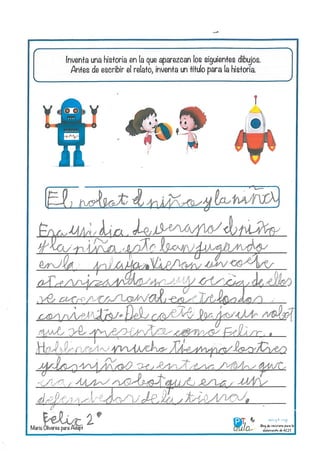 Inventa una historia en la que aparezcan los siguientes dibujos.
Antes de escribir el relato, inventa un título para la historia.
El robot el niño y la niña
Era un dia de verano el niño
y la niña estaban jugando
en la playa. Vieron un coete
aterrizando muy cerca de ellos
se acercaron al coete los dos
corriento. Del coete bajo un robot
que se presenta como Felix.
Hablaron mucho tiempo los tres
y los niños se enteraron que
era un robot que era un
defensor de la tierra.
Felix 2º
María Olivares para Aulapt